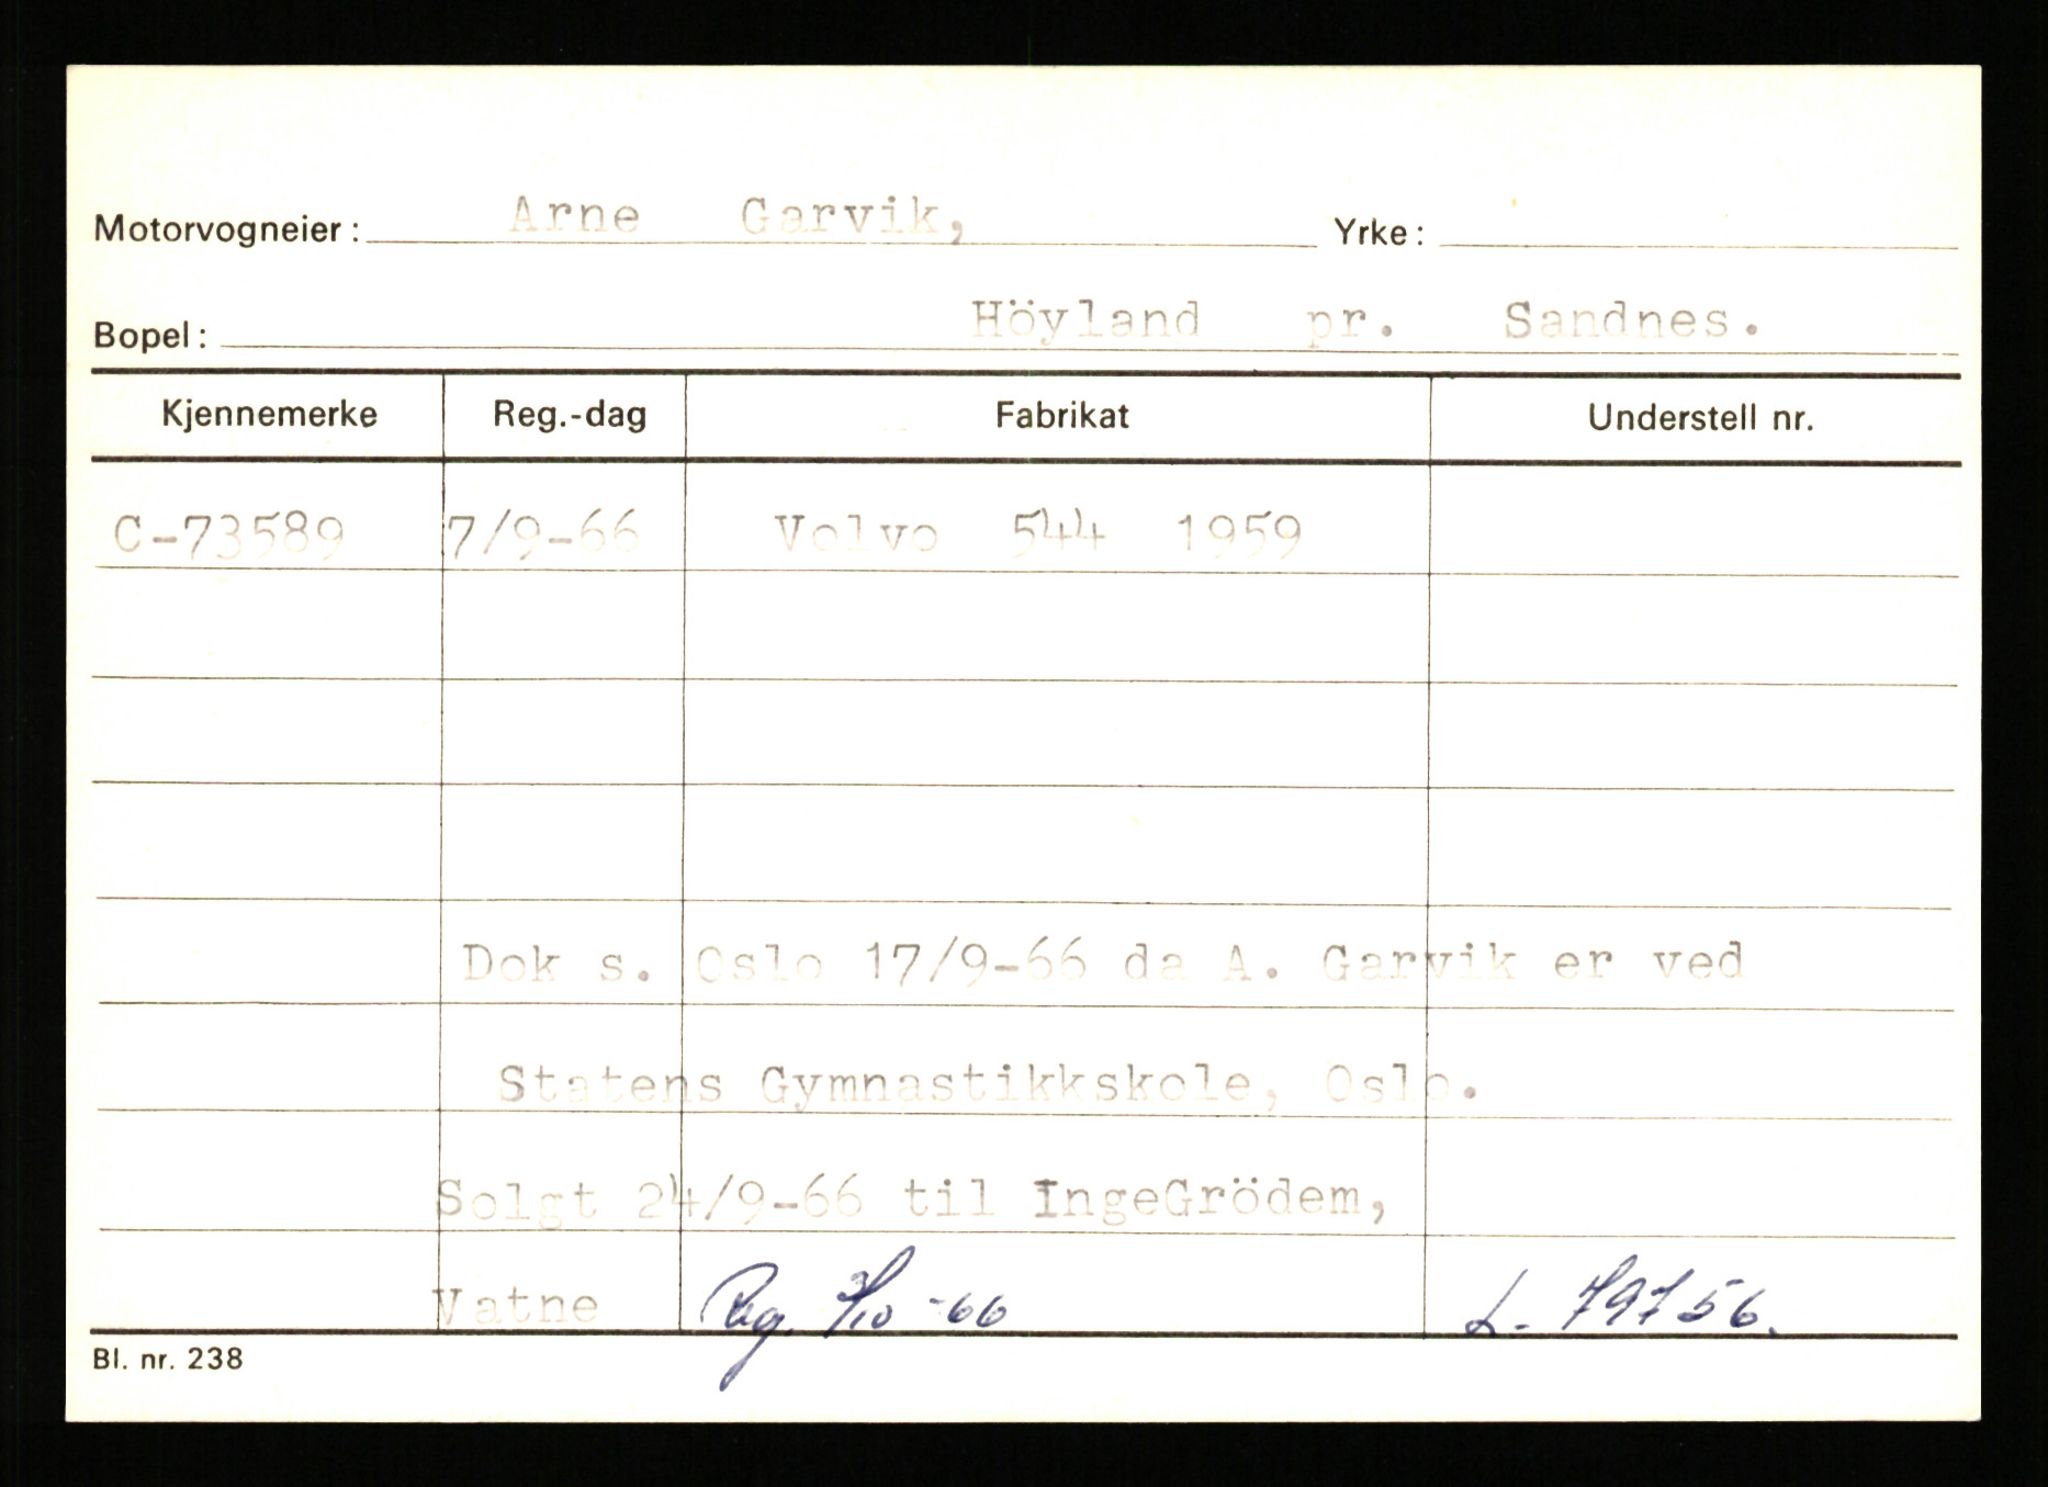 Motorvogneier: Arne Garvik, Yrke:
Bopel: Höyland pr. Sandnes.
Kjennemerke Reg.-dag Fabrikat Understell nr.
C-73589 7/9-66 Volvo 544 1959
Dok s. Oslo 17/9-66 da A. Garvik er ved
Statens Gymnastikkskole, Oslo.
Solgt 24/9-66 til IngeGrödem,
Vatne Reg. 3/10 -66 L- 79756.
Bl. nr. 238